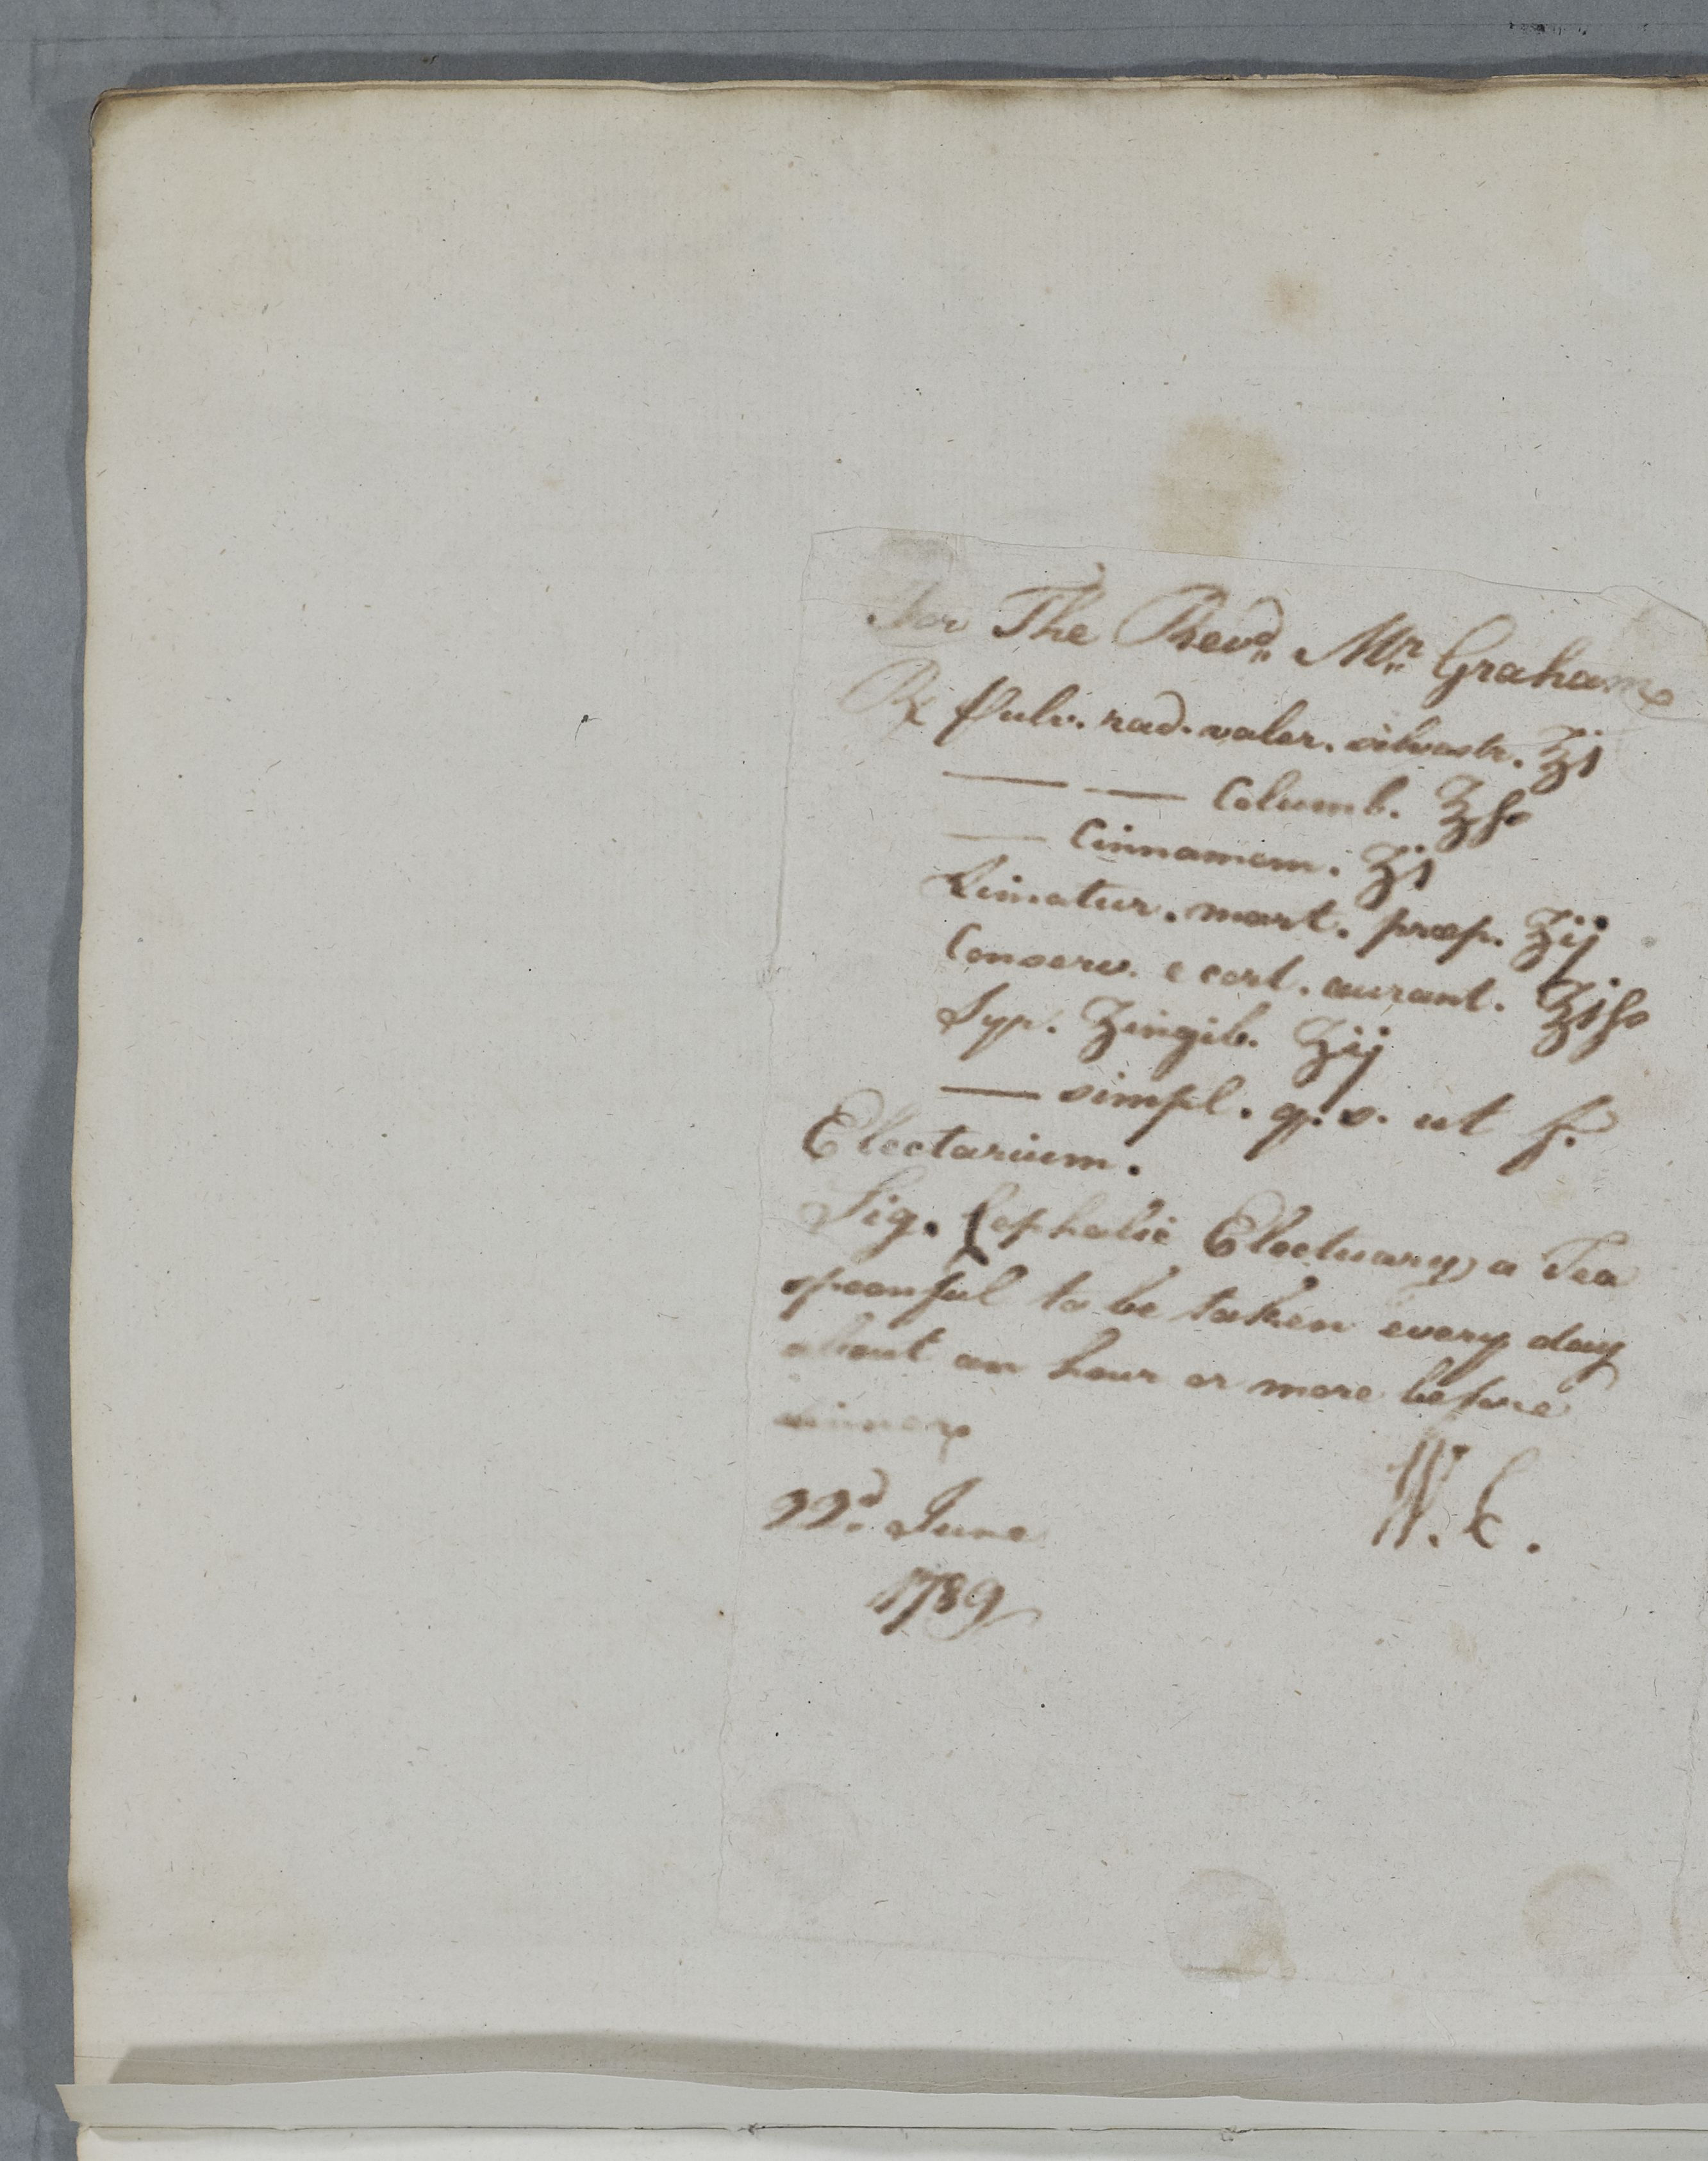 For The Revd. Mr. Graham
℞ Pulv. rad. valer. silvestr. ℥j
— — Columb. ℥ſs
— Cinnamom. ʒj
Limatur. mart. præp. ʒij
Conserv. e cort. aurant. ℥jſs
Syr. Zingib. ℥ij
— simpl. q. s. ut f.
Electarium.
Sig. Cephalic Electuary, a Tea
spoonful to be taken every day
about an hour or more before
dinner
22d. June
W. C.
1789